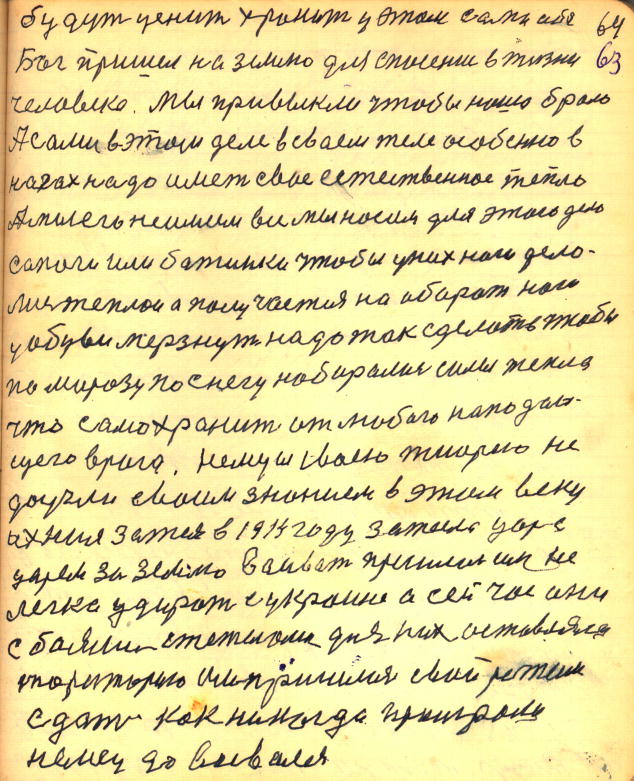 будут ценит хронит у этом сами себе 64
Бог пришел на землю для спосения в жизни 63
человека. Мы привыкли чтобы нашо брало
А сами в этом деле в своем теле особенно в
нагах надо имет свое естественное тепло
А мы его не имеим вы мы носим для этого дела
сапоги или батинки чтобы у них ноги дело-
лись теплои а получается на оборот ноги
у обуви мерзнут надо так сделоть чтобы
по морозу по снегу нобиралися силы текла
что само хронит от любого наподаю-
щего врога. Немцы свою тиорию не
доучли своим знонием в этом веку
ихния затея в 1914 году затеял царь с
царем за землю Ваиват пришлося им не
легка удирот с украине а сей час они
с боями отстоюли для них оставояла
территорию им пришлося свой
сдат как никогда проиграли
немец до воивался